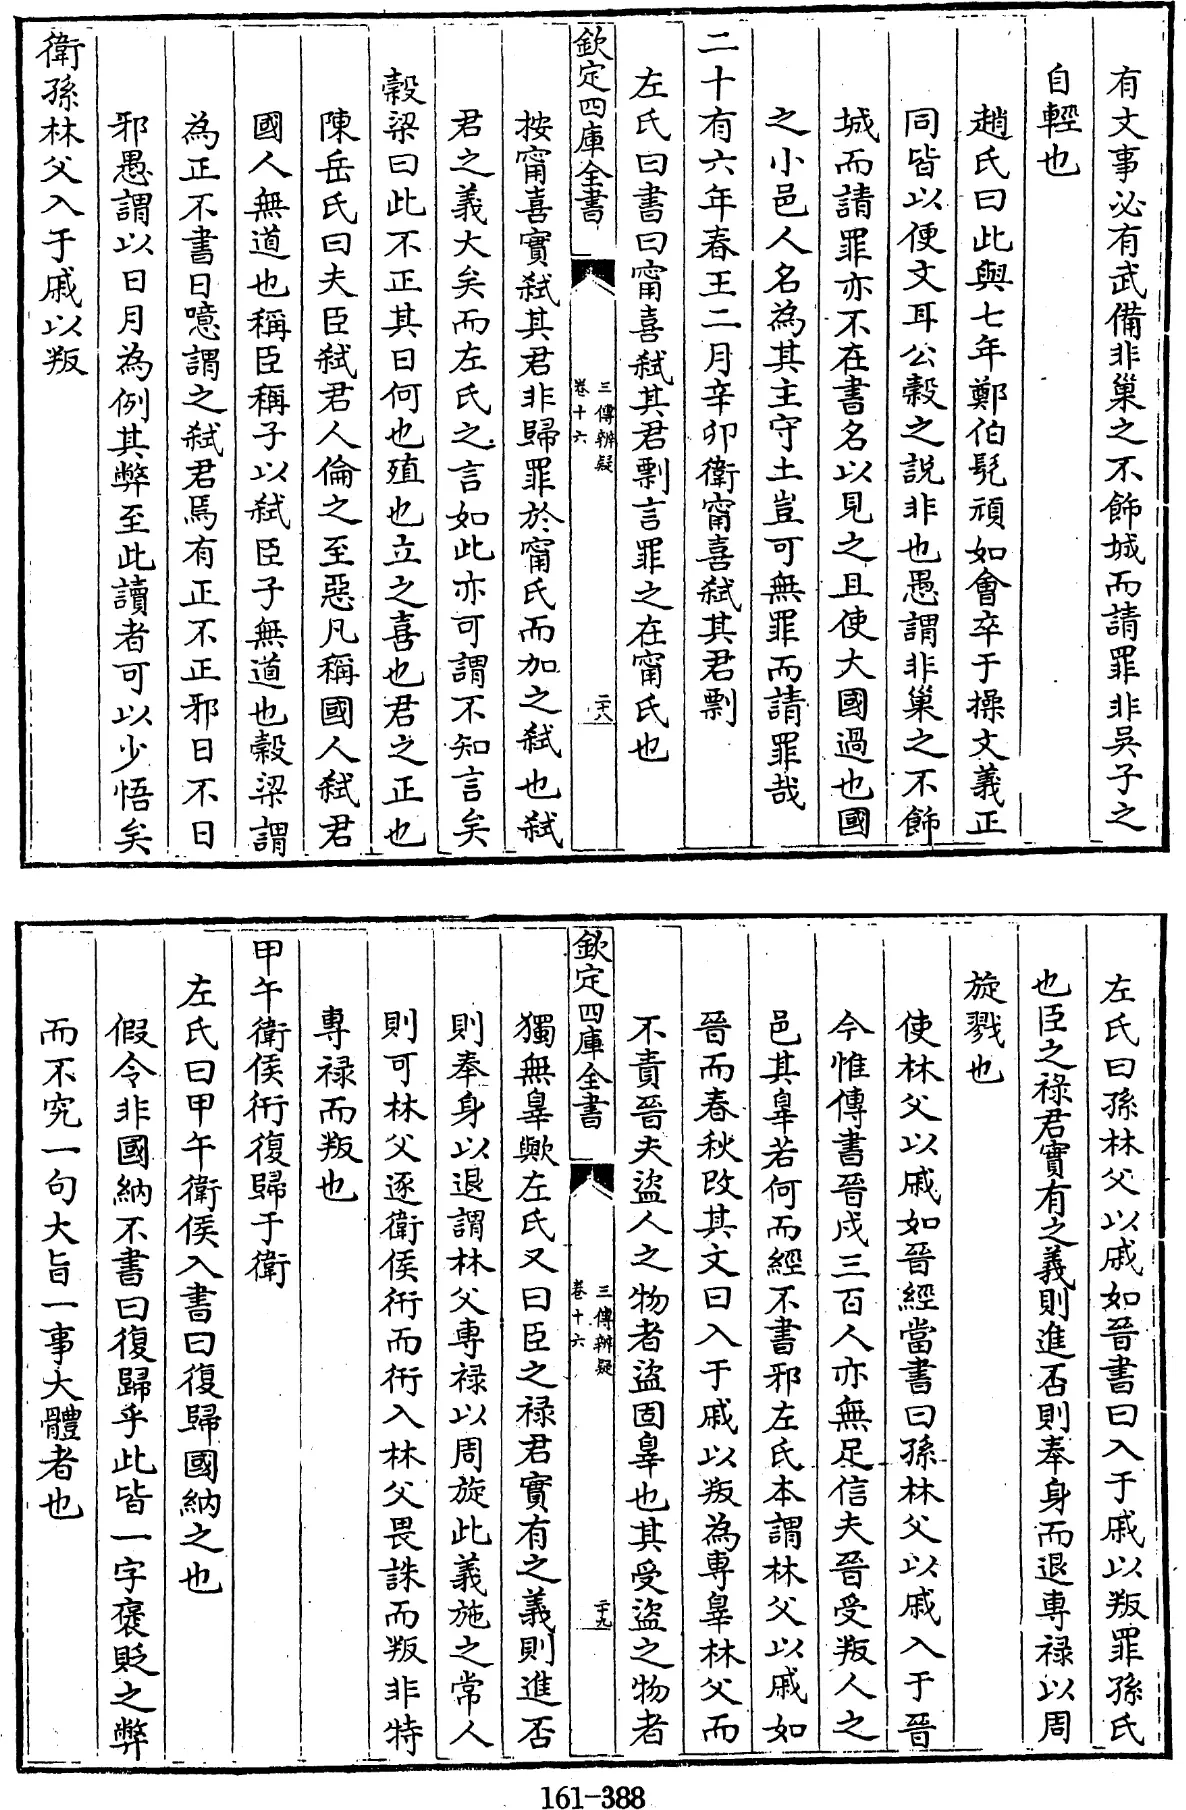 有文事必有武備非巢之不飾城而請罪非吳子之
自輕也
趙氏曰此與七年鄭伯髠頑如會卒于操文義正
同皆以便文耳公穀之説非也愚謂非巢之不飾
城而請罪亦不在書名以見之且使大國過也國
之小邑人名為其主守土豈可無罪而請罪哉
二十有六年春王二月辛卯衛甯喜弑其君剽
左氏曰書曰甯喜弑其君剽言罪之在甯氏也
欽定四庫全書
三傳辨疑
卷十六
二十八
按甯喜實弑其君非歸罪於甯氏而加之弑也弑
君之義大矣而左氏之言如此亦可謂不知言矣
穀梁曰此不正其日何也殖也立之喜也君之正也
陳岳氏曰夫臣弑君人倫之至惡凡稱國人弑君
國人無道也稱臣稱子以弑臣子無道也穀梁謂
為正不書日噫謂之弑君焉有正不正邪日不日
邪愚謂以日月為例其弊至此讀者可以少悟矣
衛孫林父入于戚以叛
左氏曰孫林父以戚如晉書曰入于戚以叛罪孫氏
也臣之禄君實有之義則進否則奉身而退專禄以周
旋戮也
使林父以戚如晉經當書曰孫林父以戚入于晉
今惟傳書晉戍三百人亦無足信夫晉受叛人之
邑其辠若何而經不書邪左氏本謂林父以戚如
晉而春秋改其文曰入于戚以叛為專辠林父而
不責晉夫盜人之物者盜固辠也其受盜之物者
欽定四庫全書
三傳辨疑
卷十六
二十九
獨無辠歟左氏又曰臣之禄君實有之義則進否
則奉身以退謂林父專禄以周旋此義施之常人
則可林父逐衛侯衎而衎入林父畏誅而叛非特
專禄而叛也
甲午衛侯衎復歸于衛
左氏曰甲午衛侯入書曰復歸國納之也
假令非國納不書曰復歸乎此皆一字褒貶之弊
而不究一句大旨一事大體者也
161-388